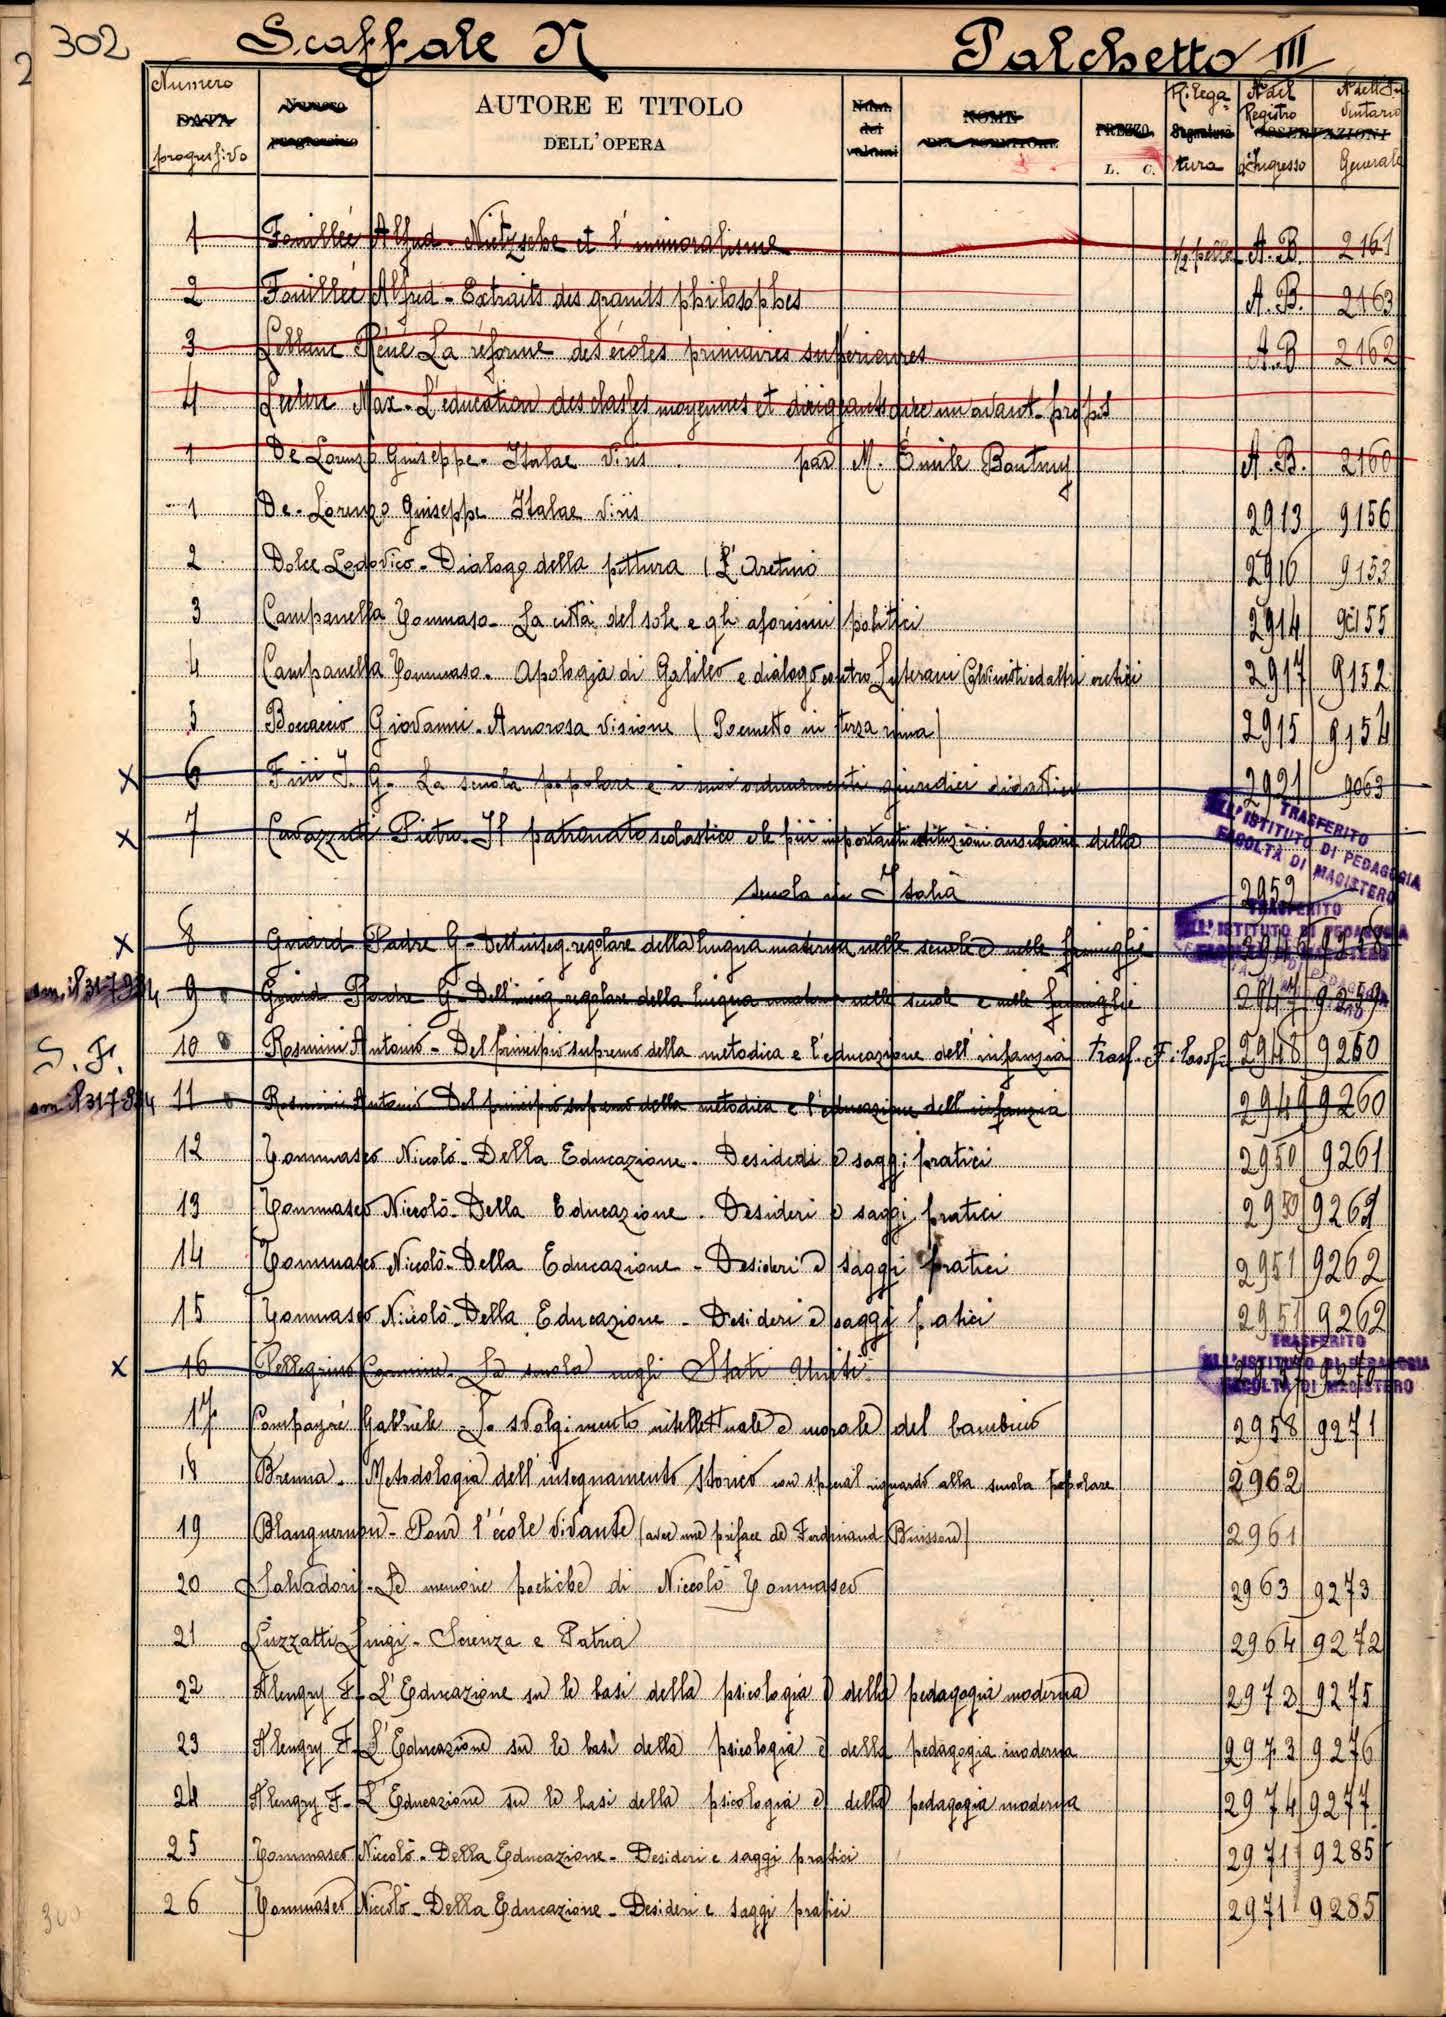 302 Scaffale N Palchetto III
Numero progressivo DATA Numero progressivo AUTORE E TITOLO DELL'OPERA Num. dei volumi NOME DEL FORNITORE PREZZO L. C. Rilegatura Segnatura N° del Registro d'Ingresso N dell'Inventario Generale OSSERVAZIONI
1 Fouillée Alfred - Nietzsche et l'immoralisme 1/2 pelle A.B. 2161
2 Fouillée Alfred - Extraits des grands philosophes A.B. 2163
3 Leblanc Réné La réforme des écoles primaires supérieures A.B 2162
4 Leclerc Max - L'éducation des classes moyennes et dirigeants avec un avant-propos
1 De Lorenzo Giuseppe - Italae Viris par M. Émile Boutmy A.B. 2160
1 De-Lorenzo Giuseppe Italae Viris 2913 9156
2 Dolce Lodovico - Dialogo della pittura (L'Aretino 2916 9153
3 Campanella Tommaso - La città del sole e gli aforismi politici 2914 9155
4 Campanella Tommaso - Apologia di Galileo e dialogo contro Luterani Calvinisti ed altri eretici 2917 9152
5 Boccaccio Giovanni - Amorosa visione (Poemetto in terza rima) 2915 9154
X 6 J. G. - La scuola popolare e i suoi ordinamenti giuridici didattici 2921 9063
X 7 Cavazzuti Pietro - Il patronato scolastico e le più importanti istituzioni ausiliarie della
TRASFERITO
ALL'ISTITUTO DI PEDAGOGIA
FACOLTÀ DI MAGISTERO
scuola in Italia 2952
TRASFERITO
ALL'ISTITUTO DI PEDAGOGIA
FACOLTÀ DI MAGISTERO
X 8 Girard Padre G - Dell'inseg. regolare della lingua materna nelle scuole e nelle famiglie 2946 9258
9 Girard Padre G - Dell'inseg. regolare della lingua materna nelle scuole e nelle famiglie 2947 9259
S. F. 10 Rosmini Antonio - Del principio supremo della metodica e l'educazione dell'infanzia Trasf. Filosofia 2948 9260
11 Rosmini Antonio Del principio supremo della metodica e l'educazione dell'infanzia 2949 9260
12 Tommaseo Niccolò - Della Educazione - Desideri e saggi pratici 2950 9261
13 Tommaseo Niccolò - Della Educazione - Desideri e saggi pratici 2950 9261
14 Tommaseo Niccolò - Della Educazione - Desideri e saggi pratici 2951 9262
15 Tommaseo Niccolò - Della Educazione - Desideri e saggi pratici 2951 9262
TRASFERITO
ALL'ISTITUTO DI PEDAGOGIA
FACOLTÀ DI MAGISTERO
X 16 Pellegrino Carmine - La scuola negli Stati Uniti 9270
17 Compayré Gabriele - Lo svolgimento intellettuale e morale del bambino 2958 9271
18 Brenna - Metodologia dell'insegnamento storico con special riguardo alla scuola popolare 2962
19 Blanguernon - Pour l'école vivante (avec une préface de Ferdinand Buisson) 2961
20 Salvadori - Le memorie poetiche di Niccolò Tommaseo 2963 9273
21 Luzzatti Luigi - Scienza e Patria 2964 9272
22 Alengry F. - L'Educazione su le basi della psicologia e della pedagogia moderna 2972 9275
23 Alengry F. L'Educazione su le basi della psicologia e della pedagogia moderna 2973 9276
24 Alengry F - L'Educazione su le basi della psicologia e della pedagogia moderna 2974 9277
25 Tommaseo Niccolò - Della Educazione - Desideri e saggi pratici 2971 9285
26 Tommaseo Niccolò - Della Educazione - Desideri e saggi pratici 2971 9285
300